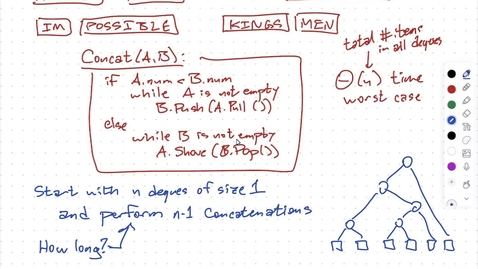 IM POSSIBLE KINGS MEN
Concat(A,B):
if A.num < B.num
while A is not empty
B.Push(A.Pull())
else
while B is not empty
A.Shove(B.Pop())
total # items
in all deques
Θ(n) time
worst case
Start with n deques of size 1
and perform n-1 concatenations
How long?